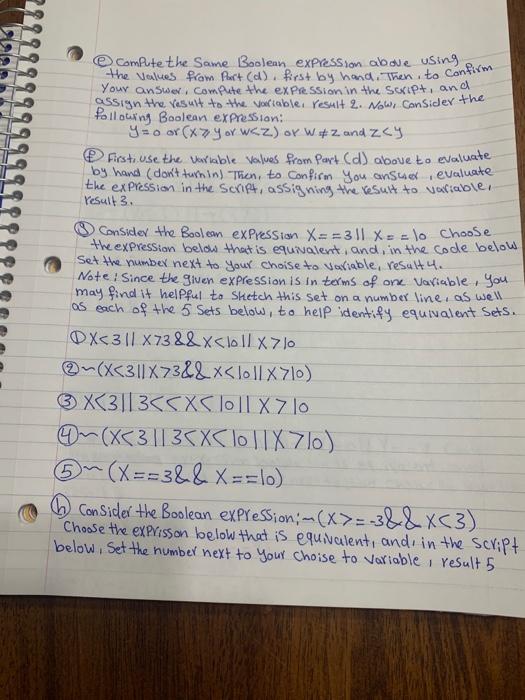 (e) Compute the Same Boolean expression above using
the Values from Part (d), first by hand. Then, to Confirm
Your answer, Compute the expression in the Script, and
assign the result to the variable, result 2. Now, Consider the
following Boolean Expression:
y = 0 or (x ≥ y or w < z) or w ≠ z and z < y
(f) First, use the variable values from Part (d) above to evaluate
by hand (don't turn in) Then, to Confirm you answer, evaluate
the expression in the Script, assigning the result to variable,
result 3.
(g) Consider the Boolean expression X==3 || X==10 Choose
the expression below that is equivalent, and, in the code below
Set the number next to your choise to variable, result 4.
Note: Since the given expression is in terms of one variable, you
may find it helpful to sketch this set on a number line, as well
as each of the 5 Sets below, to help identify equivalent sets.
① X<3 || X>3 && X<10 || X>10
② ~(X<3 || X>3 && X<10 || X>10)
③ X<3 || 3<<X<10 || X>10
④ ~(X<3 || 3<X<10 || X>10)
⑤ ~(X==3 && X==10)
(h) Consider the Boolean expression: ~(X>=-3 && X<3)
Choose the exprisson below that is equivalent, and, in the script
below, Set the number next to your choise to variable, result 5